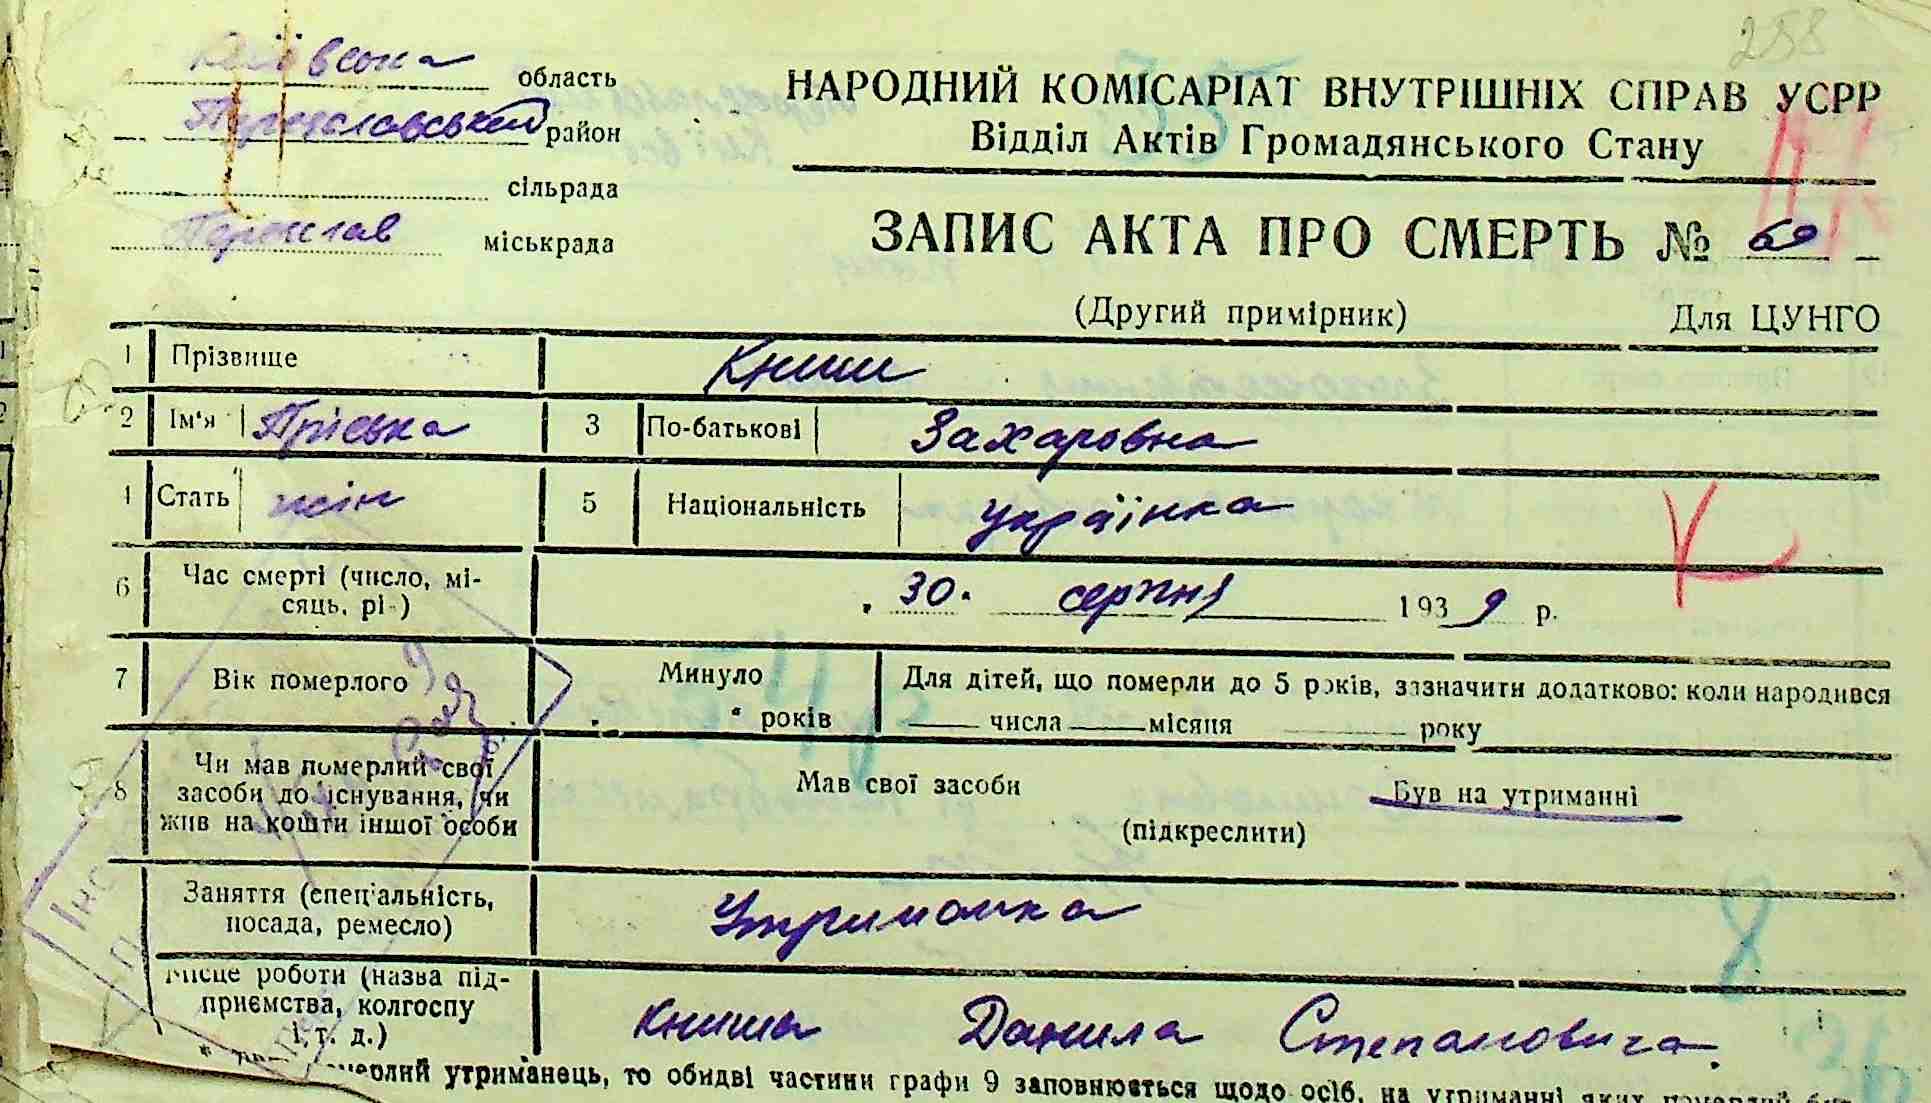 258
Київська область
Переяславський район
сільрада
Переяслав міськрада
НАРОДНИЙ КОМІСАРІАТ ВНУТРІШНІХ СПРАВ УСРР
Відділ Актів Громадянського Стану
ЗАПИС АКТА ПРО СМЕРТЬ № 69
(Другий примірник) Для ЦУНГО
1 Прізвище Книш
2 Ім'я Пріська 3 По-батькові Захаровна
4 Стать жін 5 Національність українка
К
6 Час смерті (число, мі-
сяць, рі-) 30 серпня 1939 р.
7 Вік померлого Минуло
років
Для дітей, що померли до 5 років, зазначити додатково: коли народився
числа місяця року
8 Чи мав померлий свої
засоби до існування, чи
жив на кошти іншої особи
Мав свої засоби Був на утриманні
(підкреслити)
Заняття (спеціальність,
посада, ремесло) Утриманка
Місце роботи (назва під-
приємства, колгоспу
і т. д.) Книша Данила Степановича
утриманець, то обидві частини графи 9 заповнюється щодо осіб, на утриманні яких